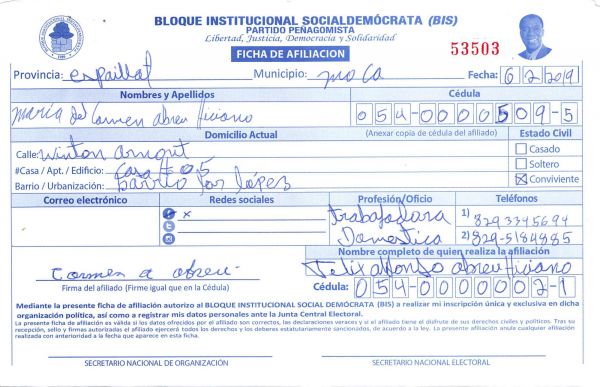 BLOQUE INSTITUCIONAL SOCIALDEMÓCRATA (BIS)
PARTIDO PEÑAGOMISTA
Libertad, Justicia, Democracia y Solidaridad
FICHA DE AFILIACION
53503
Provincia: espaillat Municipio: moca Fecha: 6 2 2019
Nombres y Apellidos Cédula
maría del Carmen abreu liviano 054-0000509-5
Domicilio Actual (Anexar copia de cédula del afiliado) Estado Civil
Calle: Winton arnout Casado
#Casa / Apt. / Edificio: Casa # 05 Soltero
Barrio / Urbanización: barrio los lópez X Conviviente
Correo electrónico Redes sociales Profesión/Oficio Teléfonos
x trabajadora 1) 829 3345694
Domestica 2) 829-5184885
Nombre completo de quien realiza la afiliación
Carmen a abreu Felix alfonso abreu liviano
Firma del afiliado (Firme igual que en la Cédula) Cédula: 054-0000002-1
Mediante la presente ficha de afiliación autorizo al BLOQUE INSTITUCIONAL SOCIAL DEMÓCRATA (BIS) a realizar mi inscripción única y exclusiva en dicha
organización política, así como a registrar mis datos personales ante la Junta Central Electoral.
La presente ficha de afiliación es válida si los datos ofrecidos por el afiliado son correctos, las declaraciones veraces y si el titular tiene el disfrute de sus derechos civiles y políticos. Tras su
recepción, sello y firmas autorizadas el afiliado ejercerá todos los derechos y los deberes estatutariamente sancionados, de acuerdo a la ley. La presente afiliación anula cualquier afiliación
realizada con anterioridad a la fecha que aparece en esta ficha.
SECRETARIO NACIONAL DE ORGANIZACIÓN SECRETARIO NACIONAL ELECTORAL